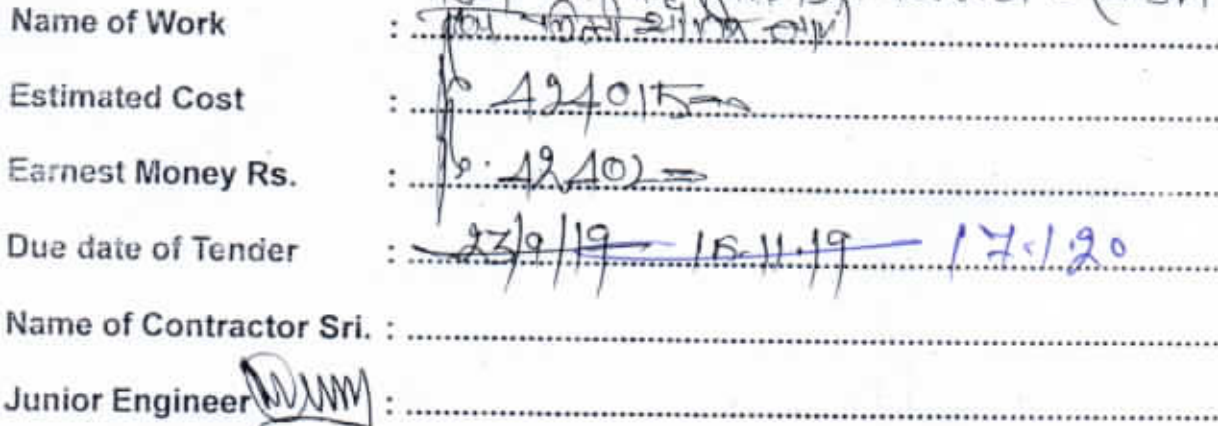 Name of Work :
Estimated Cost : 424015=00
Earnest Money Rs. : 42402=
Due date of Tender : 23/9/19 15.11.19 17.1.20
Name of Contractor Sri. :
Junior Engineer :